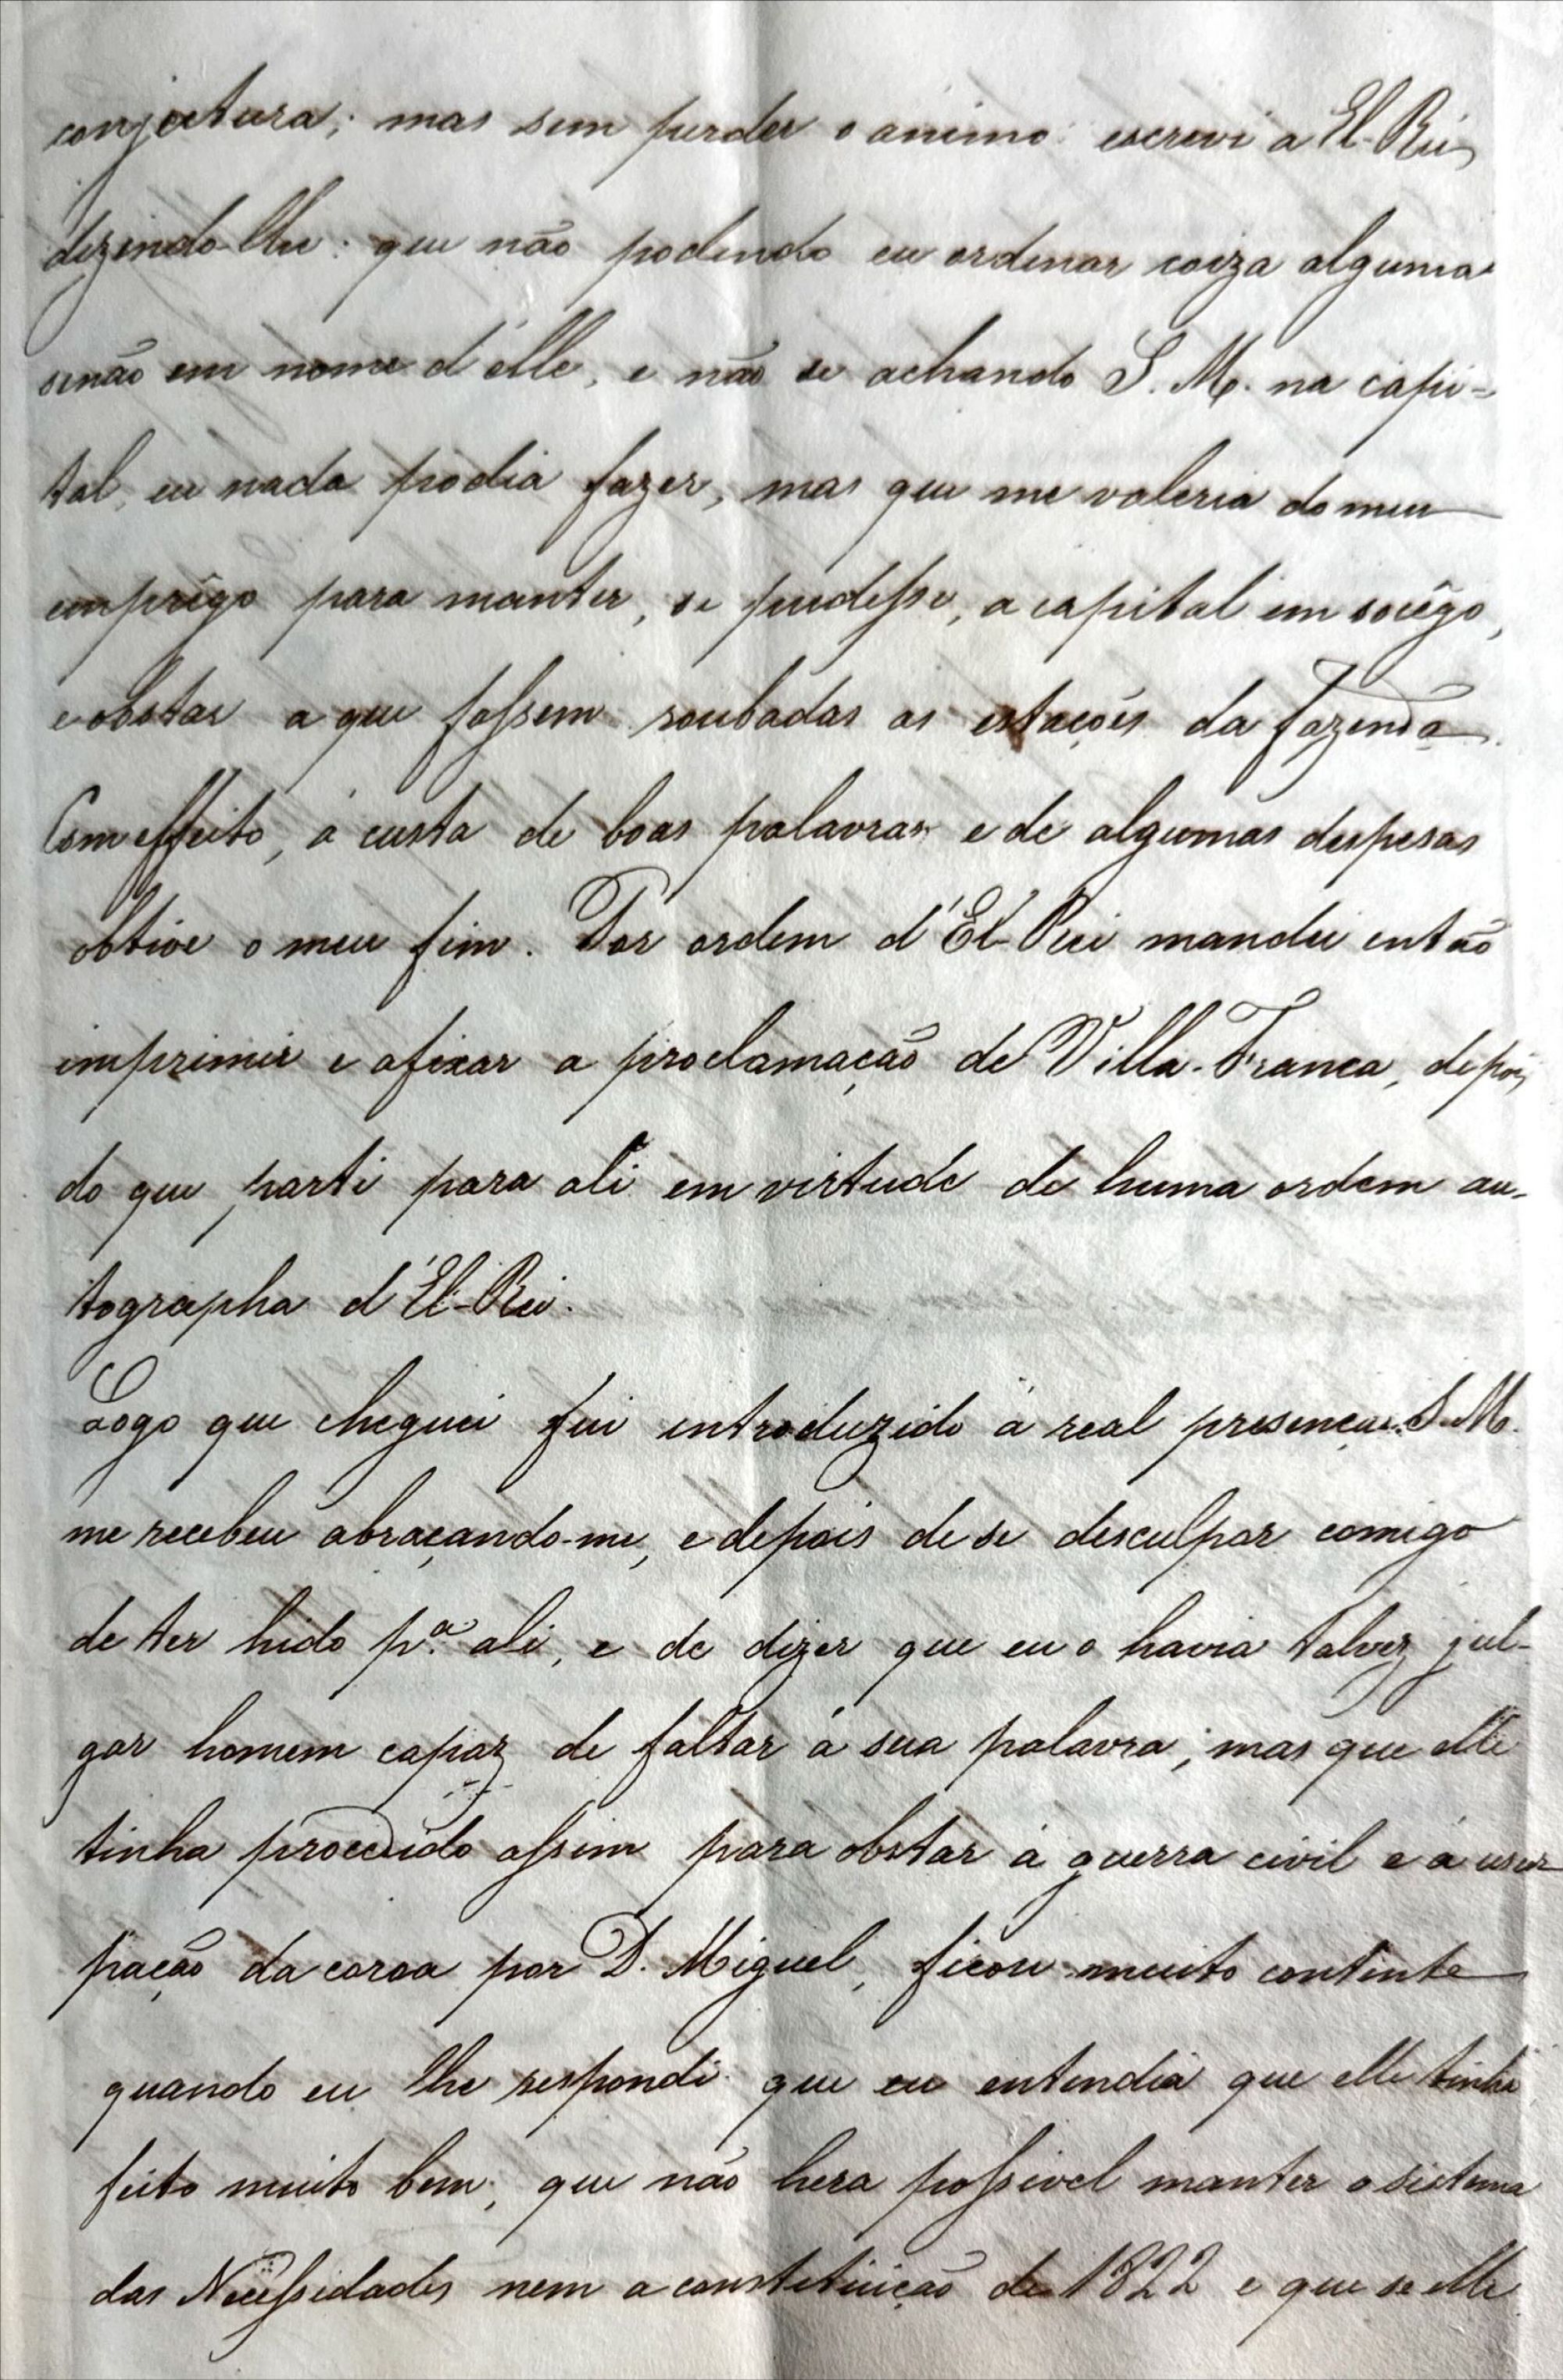 conjectura; mas sem perder o animo escrevi a El-Rei,
dizendo-lhe: que não podendo eu ordenar coiza alguma
senão em nome d'elle, e não se achando S. M. na capi=
tal, eu nada podia fazer, mas que me valeria do meu
emprêgo para manter, se pudesse, a capital em socêgo,
e obstar a que fossem roubadas as estações da fazenda.
Com effeito, á custa de boas palavras e de algumas despesas
obtive o meu fim. Por ordem d'El-Rei mandei então
imprimir e afixar a proclamação de Villa-Franca, depois
do que parti para ali em virtude de huma ordem au-
tographa d'El-Rei.
Logo que cheguei fui introduzido á real presença. S. M.
me recebeu abraçando-me, e depois de se desculpar comigo
de ter hido p.ª ali, e de dizer que eu o havia talvez jul-
gar homem capaz de faltar á sua palavra; mas que elle
tinha procedido assim para obstar á guerra civil e á usur-
pação da coroa por D. Miguel, ficou muito contente
quando eu lhe respondi que eu entendia que elle tinha
feito muito bem; que não hera possivel manter o sistema
das Necessidades nem a constituição de 1822 e que se elle